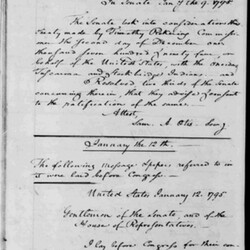 In Senate Jan'y the 9. 1795
The Senate took into consideration the
treaty made by Timothy Pickering Commissio
ner the second day of December one
thousand seven hundred & ninety four, on
behalf of the United States, with the oneida,
Tuscorora and Stockbridge Indians, and
Resolved two thirds of the Senate
concurring therein that they advise & consent
to the ratification of the same.
Attest,
Sam. A. Otis, Secy
January the 12th.
The following message & papers referred to in
it were laid before Congress.
United States January 12. 1795
Gentlemen of the Senate, and of the
House of Representatives.
I lay before Congress for their con